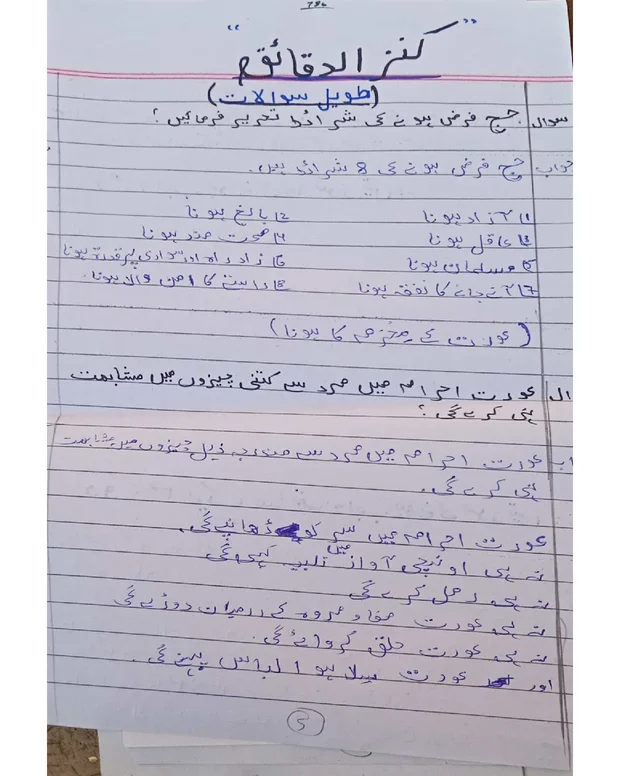 786
"کنز الدقائق"
(طویل سوالات)
سوال حج فرض ہونے کی شرائط تحریر فرمائیں؟
جواب حج فرض ہونے کی 8 شرائط ہیں۔
1) آزاد ہونا 2) بالغ ہونا
3) عاقل ہونا 4) صحت مند ہونا
5) مسلمان ہونا 6) زاد راہ اور سواری پر قدرت ہونا
7) آنے جانے کا نفقہ ہونا 8) راستے کا امن والا ہونا
(عورت کے محرم کا ہونا)
ال عورت احرام میں مرد سے کتنی چیزوں میں مشابہت
نہی کرے گی؟
اب عورت احرام میں مرد سے مندرجہ ذیل چیزوں میں مشابہت
نہی کرے گی۔
عورت احرام میں سر کو ڈھانپے گی۔
نہ ہی اونچی آواز میں تلبیہ کہے گی
نہ ہی رمل کرے گی
نہ ہی عورت صفا و مروہ کے درمیان دوڑے گی
نہ ہی عورت حلق کروائے گی۔
اور عورت سلا ہوا لباس پہنے گی۔
5